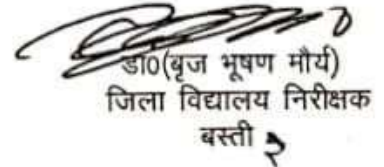 डा0(बृज भूषण मौर्य)
जिला विद्यालय निरीक्षक
बस्ती